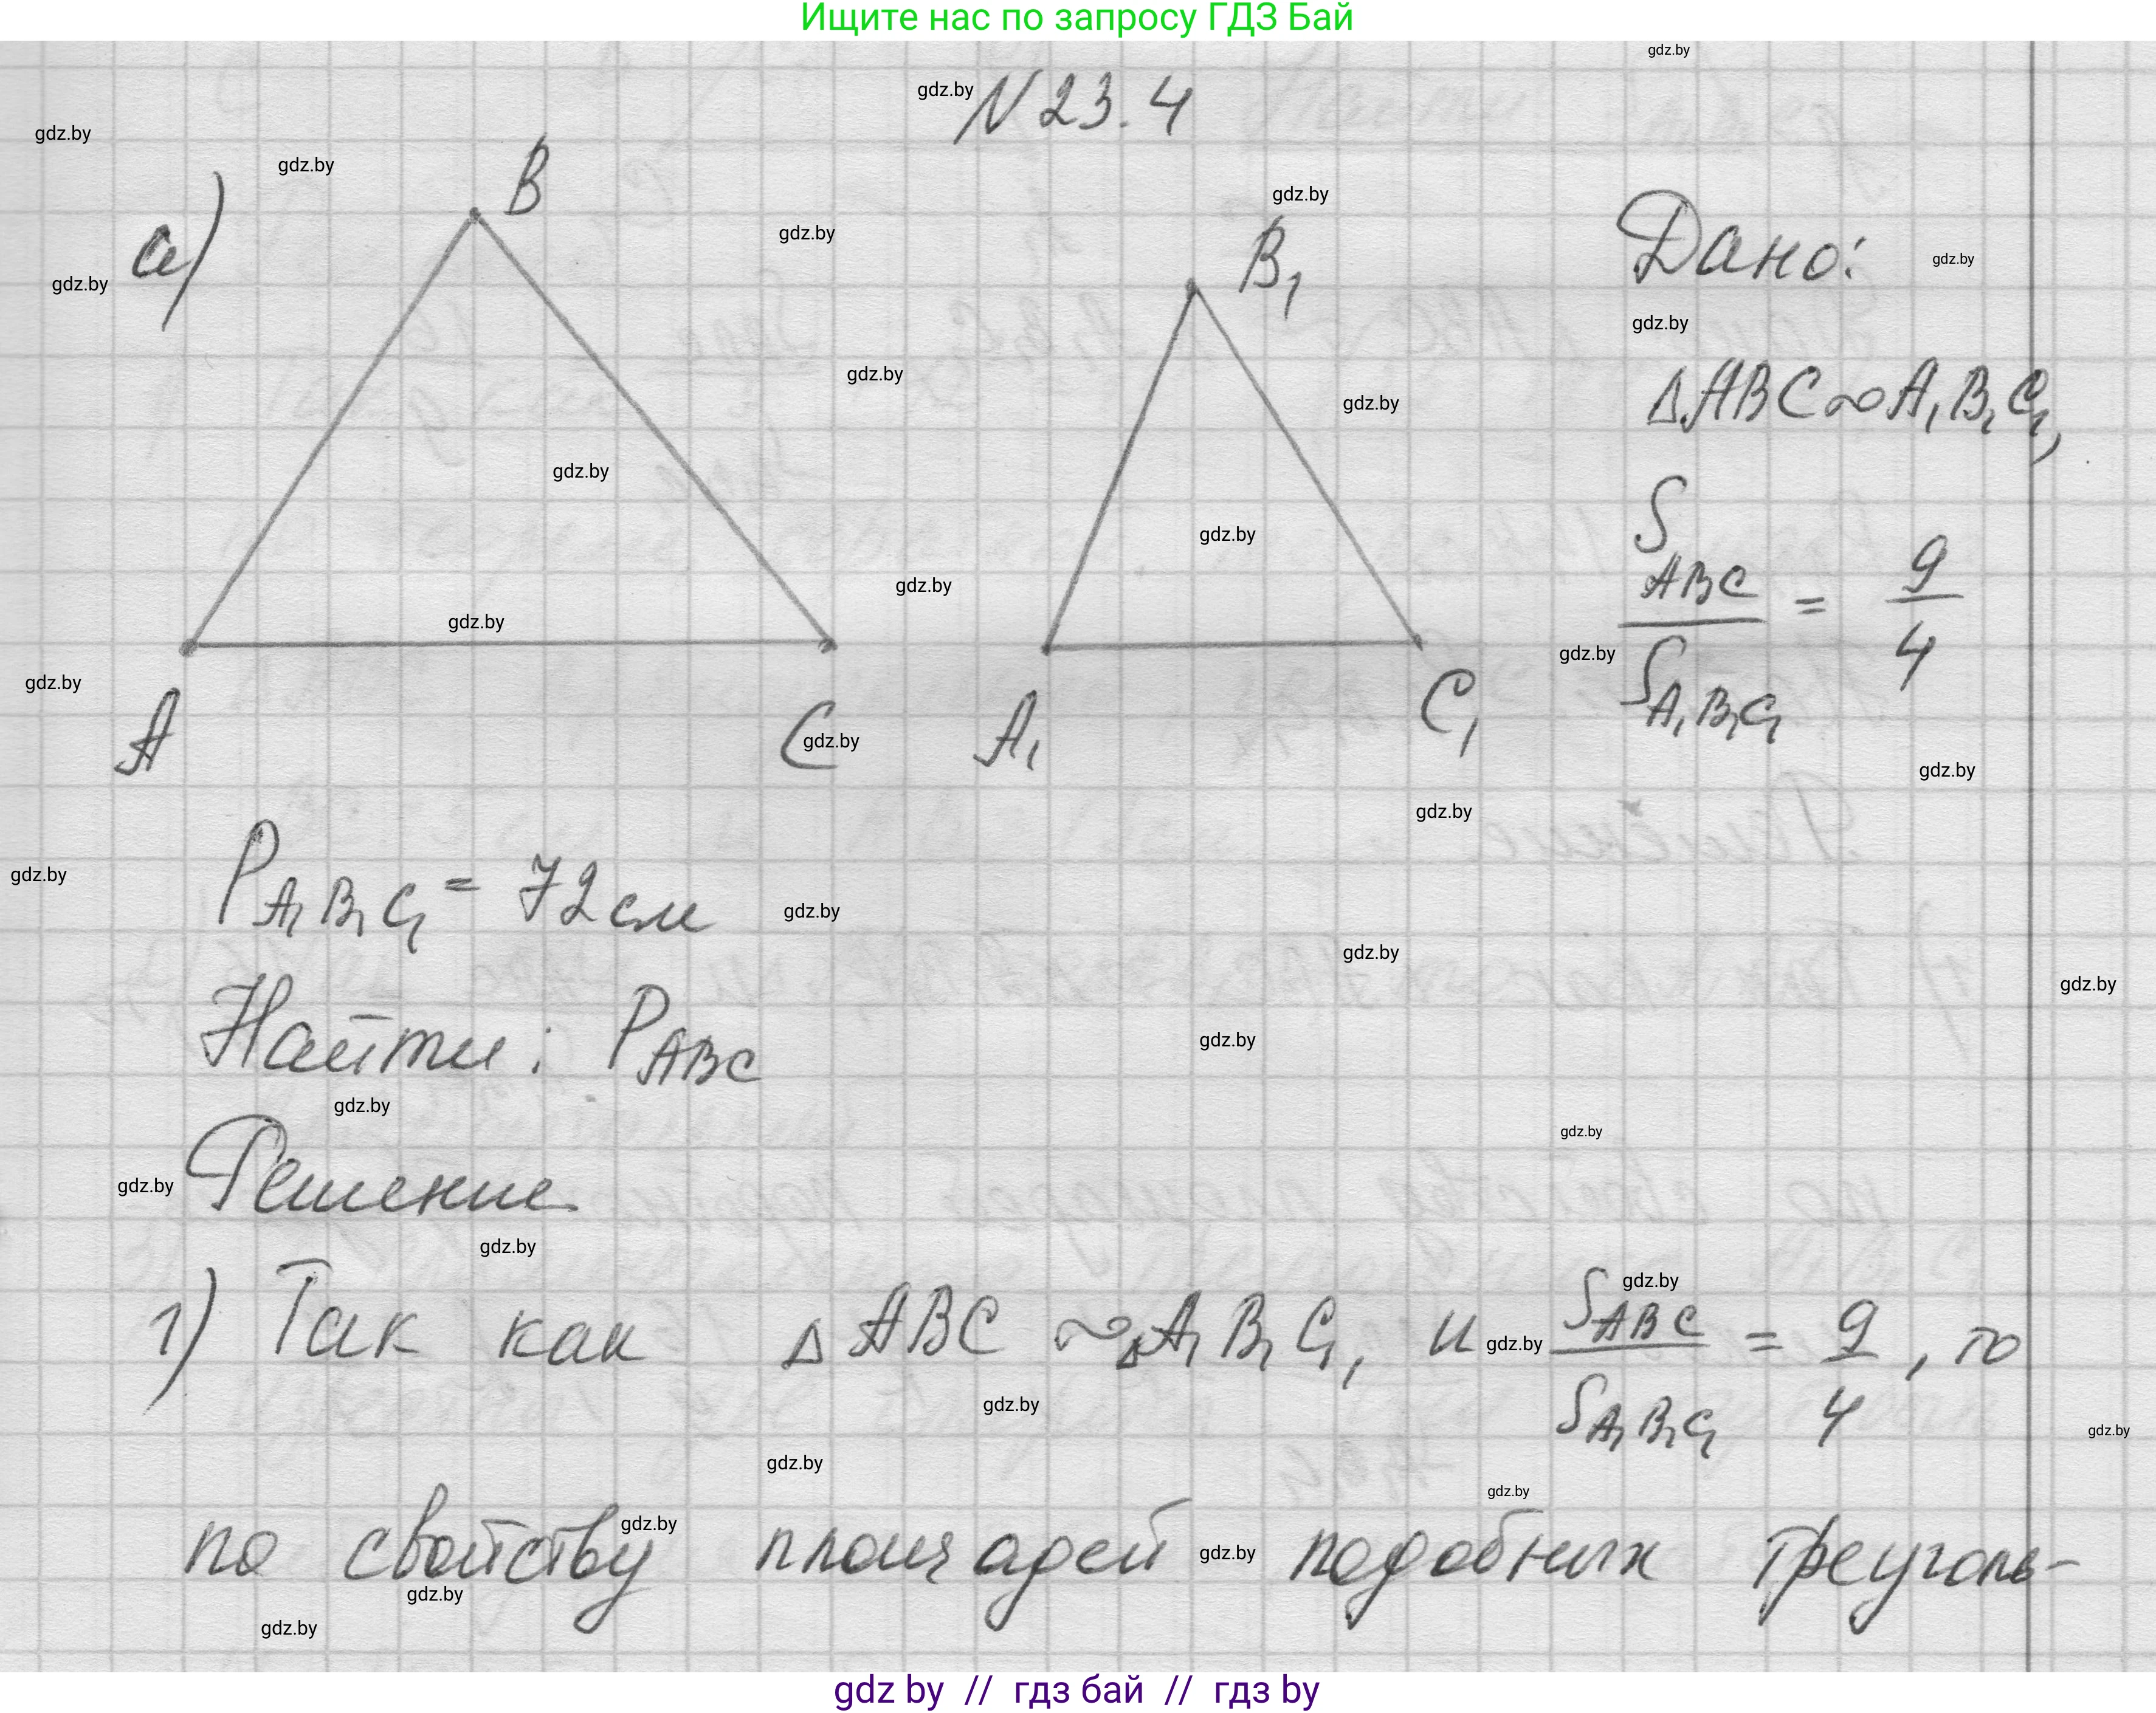 Ищите нас по запросу ГДЗ Бай
N 23.4
а)
B
B₁
A
C
A₁
C₁
Дано:
ΔABC∾A₁B₁C₁,
S ABC / S A₁B₁C₁ = 9/4
P A₁B₁C₁ = 72 см
Найти: P ABC
Решение
1) Так как Δ ABC ∾ Δ A₁B₁C₁, и S ABC / S A₁B₁C₁ = 9/4, то
по свойству площадей подобных треуголь-
gdz.by
gdz by // гдз бай // гдз by